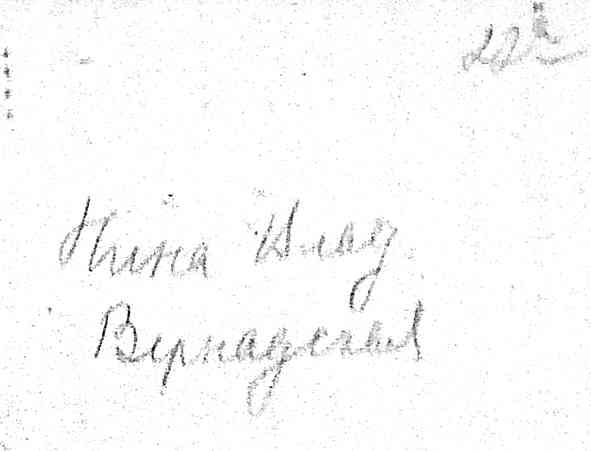 Нина Влад.
Вернадская